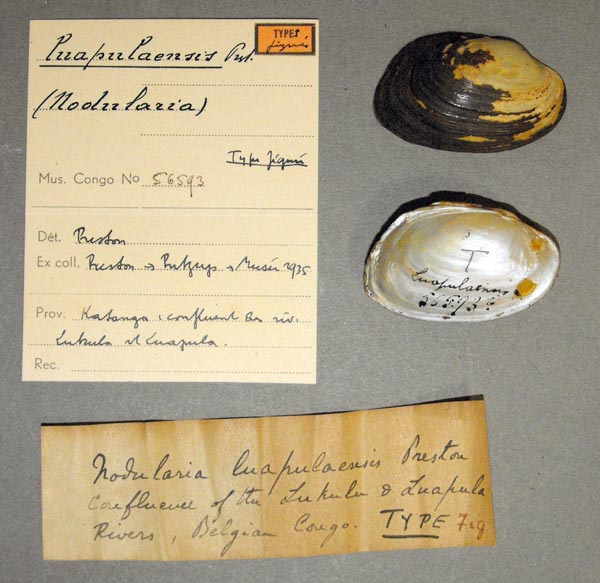 TYPES
figurés
Luapulaensis Prst.
(Nodularia)
Type figuré
Mus. Congo No 56593
Dét. Preston
Ex coll. Preston → Putzeys → Musée 1935
Prov. Katanga : confluent des riv.
Lukulu et Luapula.
Rec.
T
Luapulaensis
56593
Nodularia luapulaensis Preston
Confluence of the Lukulu & Luapula
Rivers, Belgian Congo. TYPE Fig